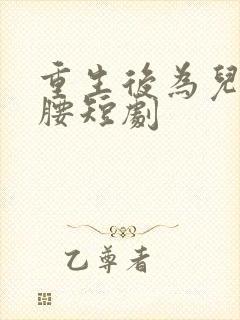 重生後為兒
腰短劇
乙尊者